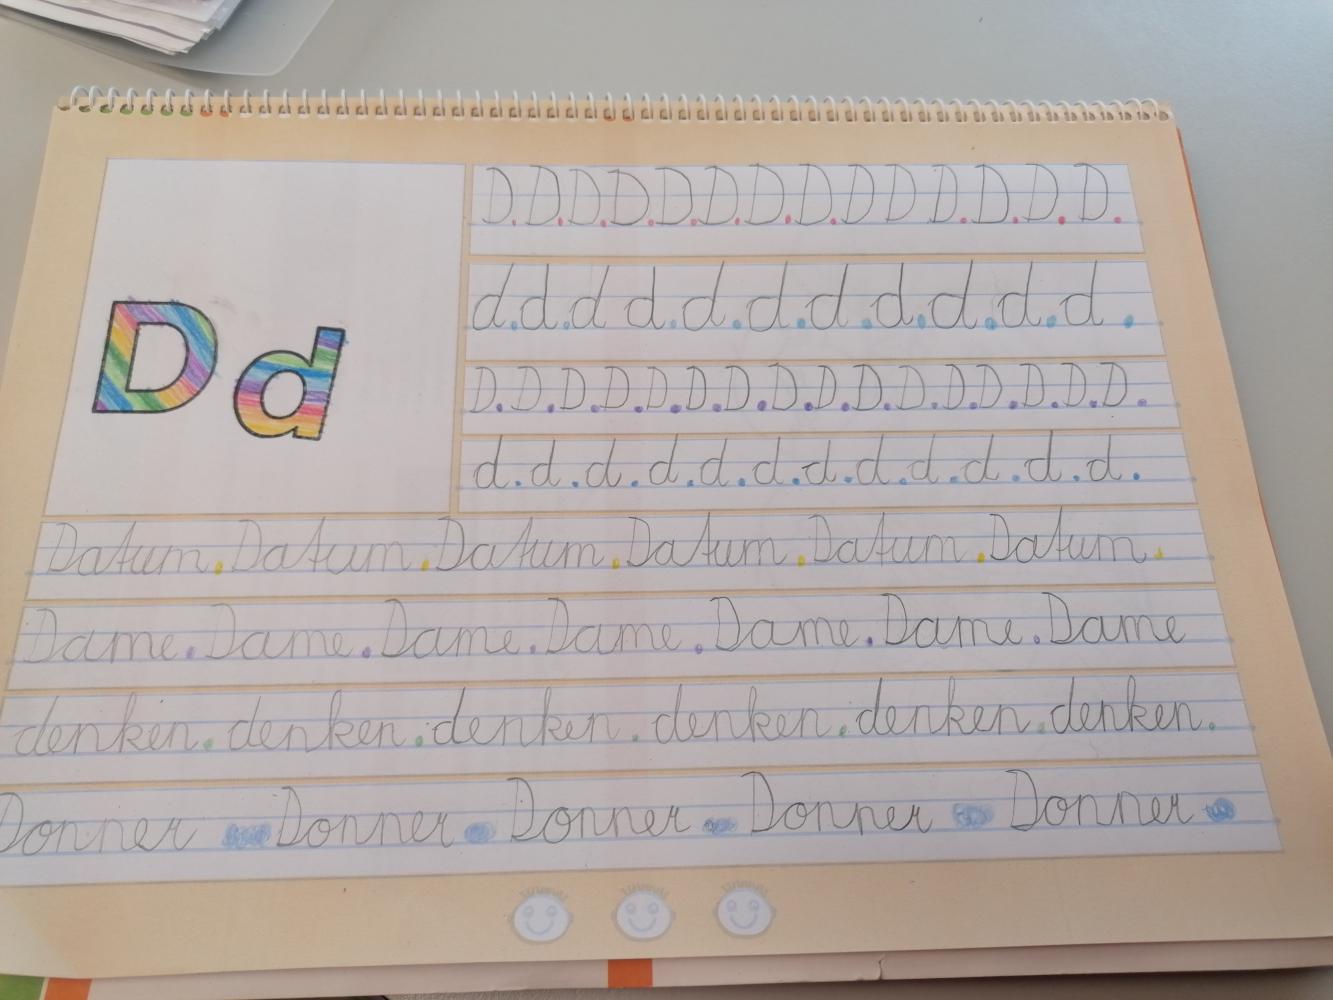 Dd
D.D.D.D.D.D.D.D.D D D.D.D.D.
d.d.d d.d.d.d.d.d.d.d.
D.D.D.D.D.D.D.D.D.D.D.D.D.D.D.D.
d.d.d.d.d.d.d.d.d.d.d.d.
Datum.Datum.Datum.Datum.Datum.Datum.
Dame.Dame.Dame.Dame.Dame.Dame.Dame
denken.denken.denken.denken.denken.denken.
Donner.Donner.Donner.Donner.Donner.